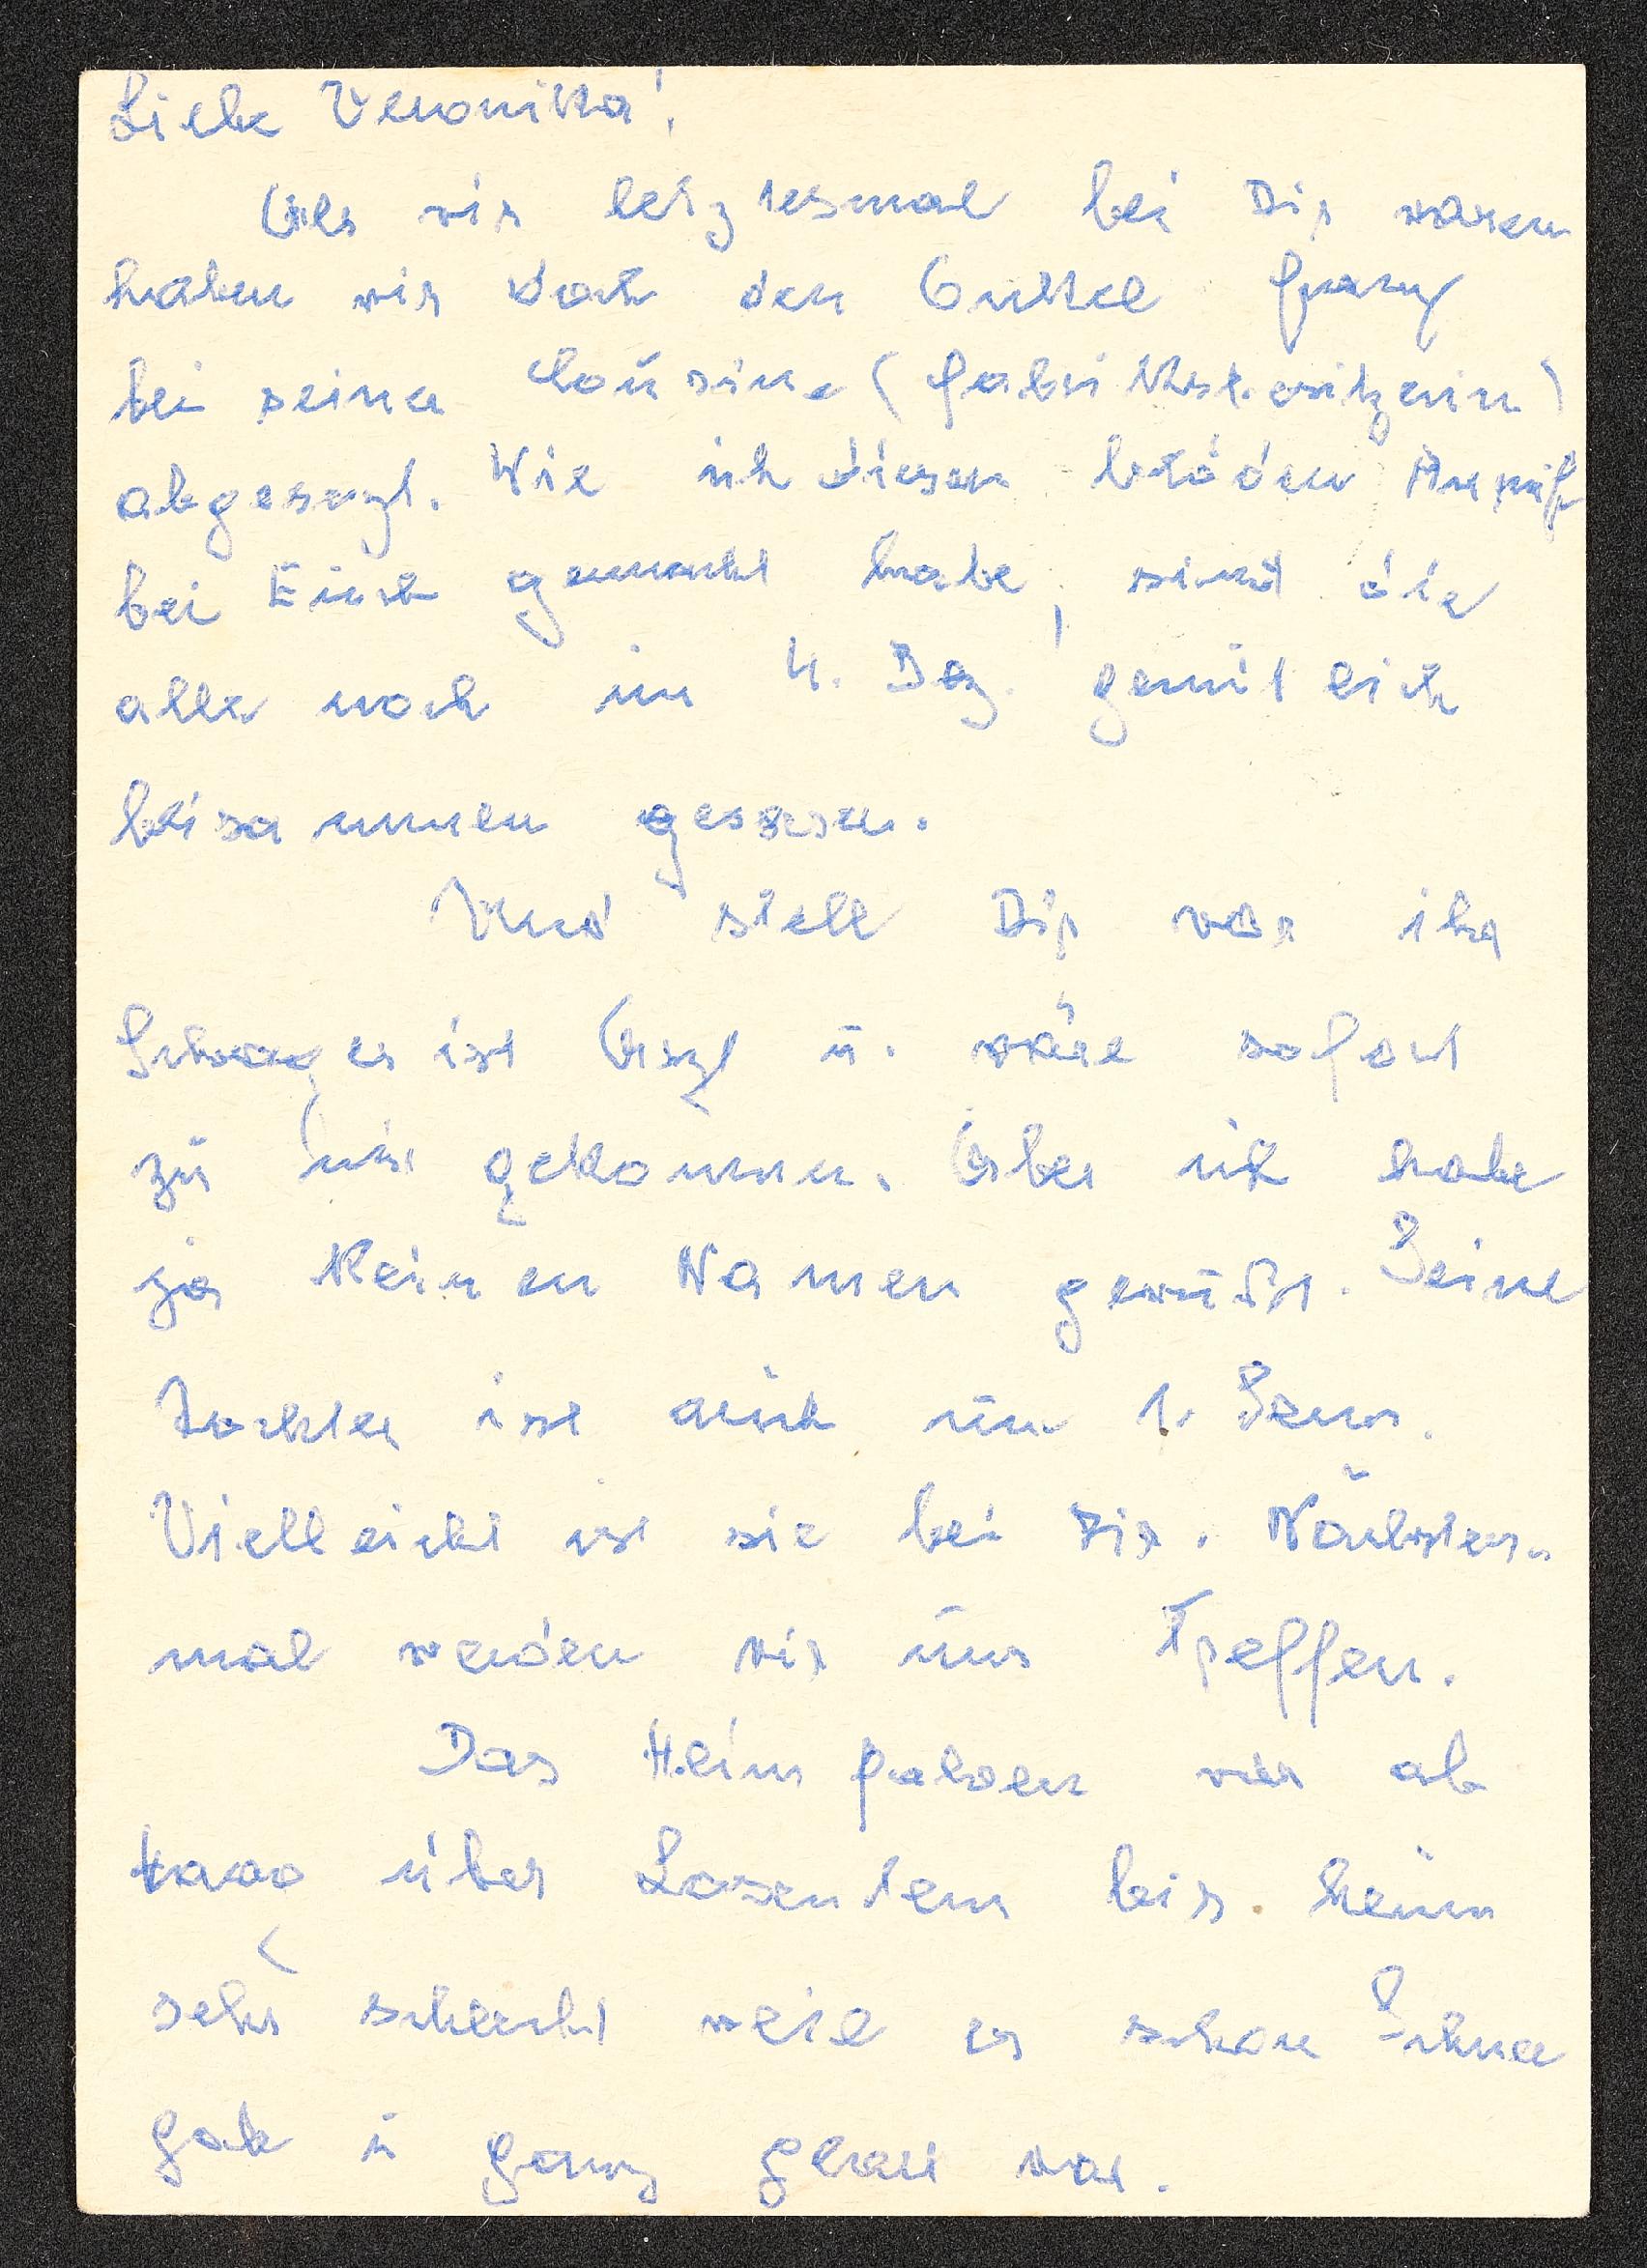 Liebe Veronika!
Als wir letztesmal bei Dir waren
haben wir doch den Onkel Franz
bei seiner Cousine (Fabriksbesitzerin)
abgesetzt. Wie ich diesen blöden Anruf
bei Euch gemacht habe, sind die
alle noch im 4. Bez. gemütlich
beisammen gesessen.
Und stell Dir vor ihr
Schwager ist Arzt u. wäre sofort
zu mir gekommen. Aber ich habe
ja keinen Namen gewußt. Seine
Tochter ist auch im 1. Sem.
Vielleicht ist sie bei Dir. Nächstes-
mal werden wir uns Treffen.
Das Heimfahren war ab
über Losenstein bis heim
sehr schlecht weil es schon Schnee
gab u ganz glatt war.